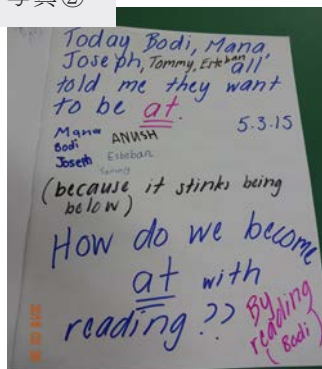 写真②
Today Bodi, Mana,
Joseph, Tommy, Esteban all
told me they want
to be at.
5.3.15
Mana ANUSH
Bodi
Joseph Esteban
Tommy
(because it stinks being
below)
How do we become
at with
reading ??
By
reading
(Bodi)